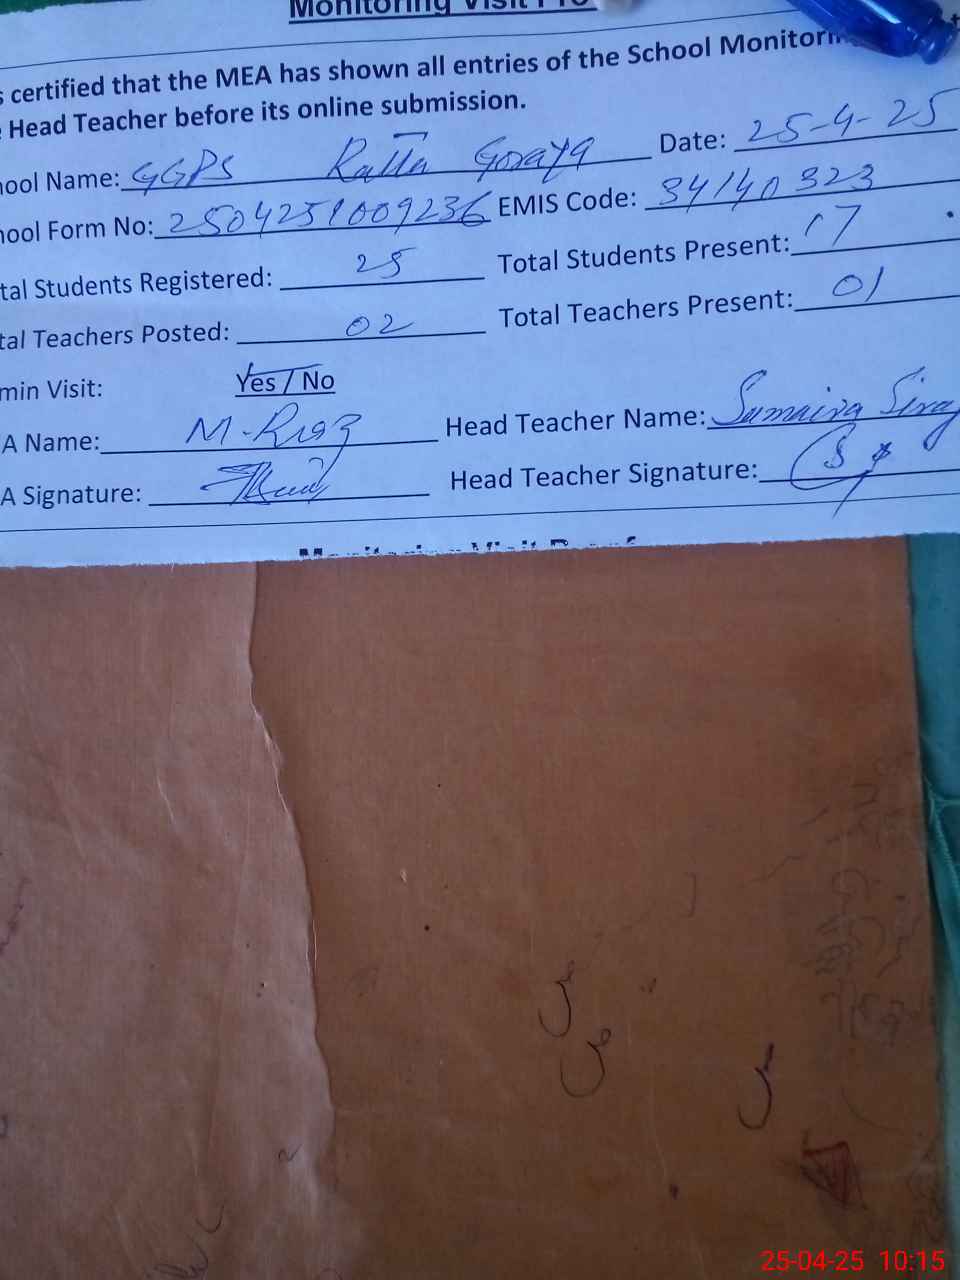 Monitoring Visit Pro
s certified that the MEA has shown all entries of the School Monitorin
e Head Teacher before its online submission.
hool Name: GGPS Ratta Goraya Date: 25-4-25
hool Form No: 2504251009236 EMIS Code: 34140323
tal Students Registered: 25 Total Students Present: 17
tal Teachers Posted: 02 Total Teachers Present: 01
min Visit: Yes / No
A Name: M-Riaz Head Teacher Name: Sumaira Siraj
A Signature: Head Teacher Signature:
Monitoring Visit Proof
25-04-25 10:15